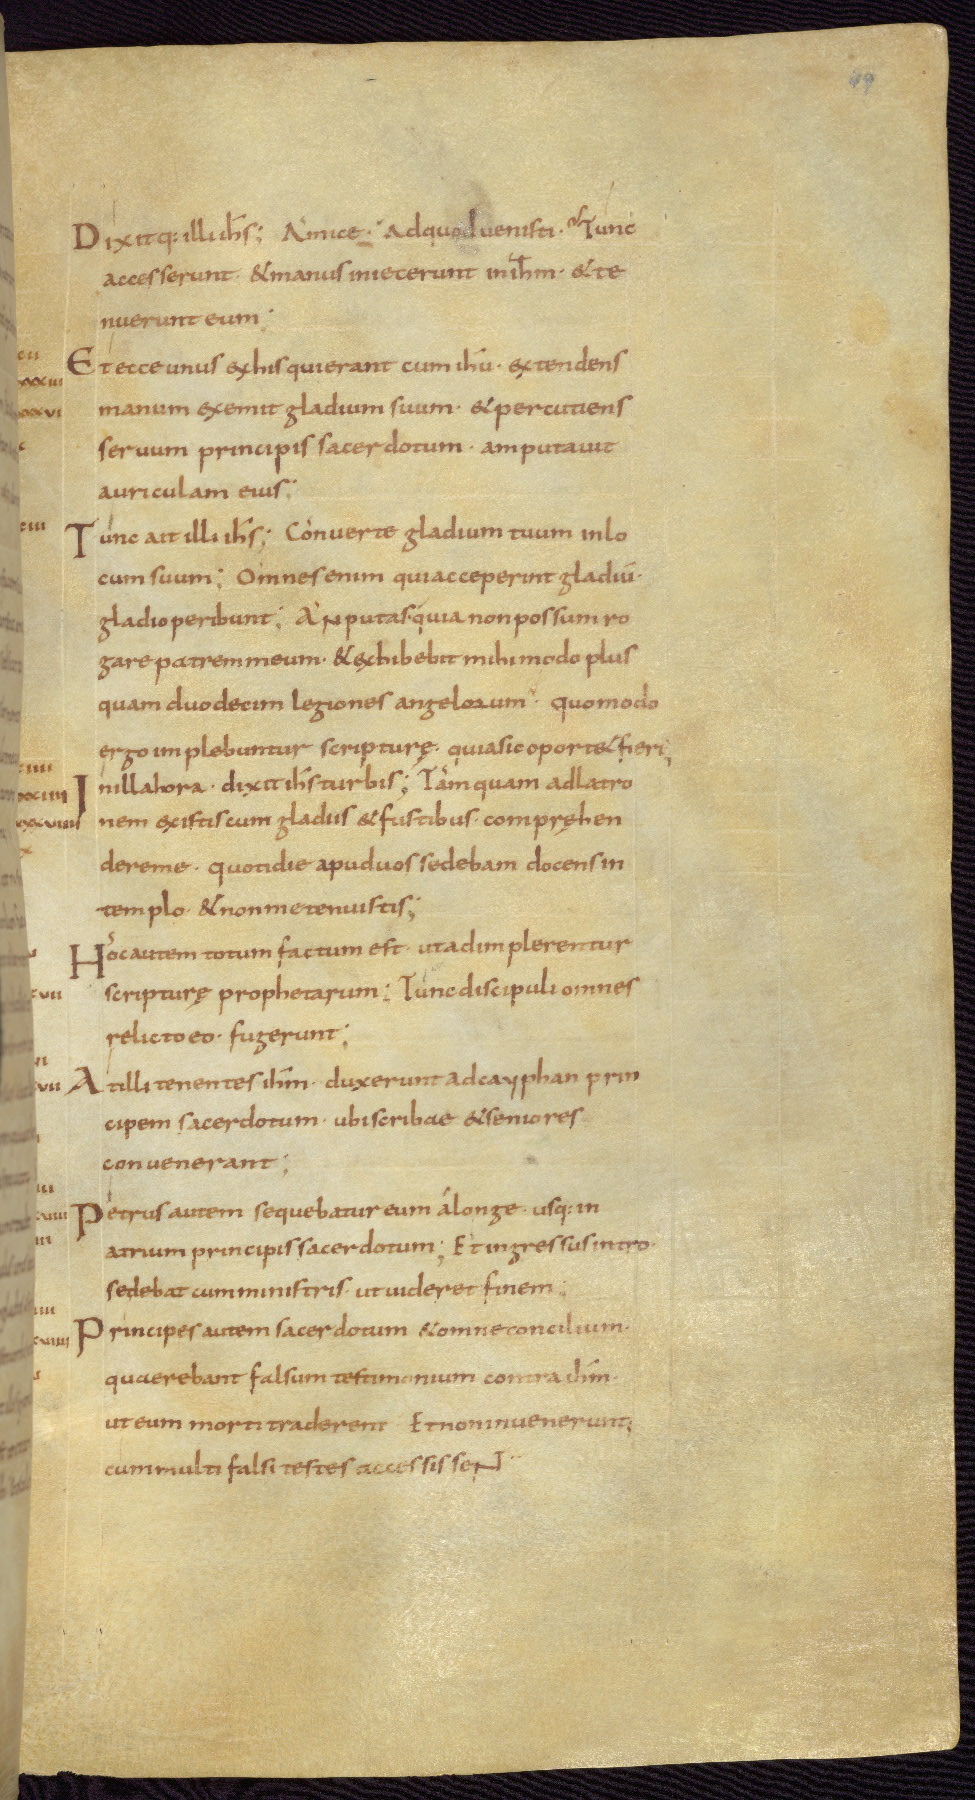 49
Dixitq: illi ihs; Amice· Adquod uenisti· Tunc
accesserunt· & manus iniecerunt in ihm· & te
nuerunt eum;
Et ecce unus ex his qui erant cum ihu· extendens
manum exemit gladium suum· & percutiens
seruum principis sacerdotum· amputauit
auriculam eius;
Tunc ait illi ihs; Conuerte gladium tuum in lo
cum suum; Omnes enim qui acceperint gladiū·
gladio peribunt; An putas quia non possum ro
gare patrem meum· & exhibebit mihi modo plus
quam duodecim legiones angelorum· Quomodo
ergo implebuntur scripturę· quia sic oport& fieri;
In illa hora· dixit ihs turbis; Tamquam ad latro
nem existis cum gladiis & fustibus· compręhen
dere me· Quotidie apud uos sedebam docens in
templo· & non me tenuistis;
Hoc autem totum factum est· ut adimplerentur
scripturę prophetarum; Tunc discipuli omnes
relicto eo· fugerunt;
At illi tenentes ihm· duxerunt ad cayphan prin
cipem sacerdotum· ubi scribae & seniores
conuenerant;
Petrus autem sequebatur eum a longe· usq: in
atrium principis sacerdotum; Et ingressus intro·
sedebat cum ministris· ut uideret finem;
Principes autem sacerdotum & omne concilium·
quaerebant falsum testimonium contra ihm·
ut eum morti traderent Et non inuenerunt;
cum multi falsi testes accessissent